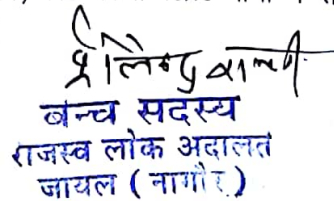 बेन्च सदस्य
राजस्व लोक अदालत
जायल (नागौर)